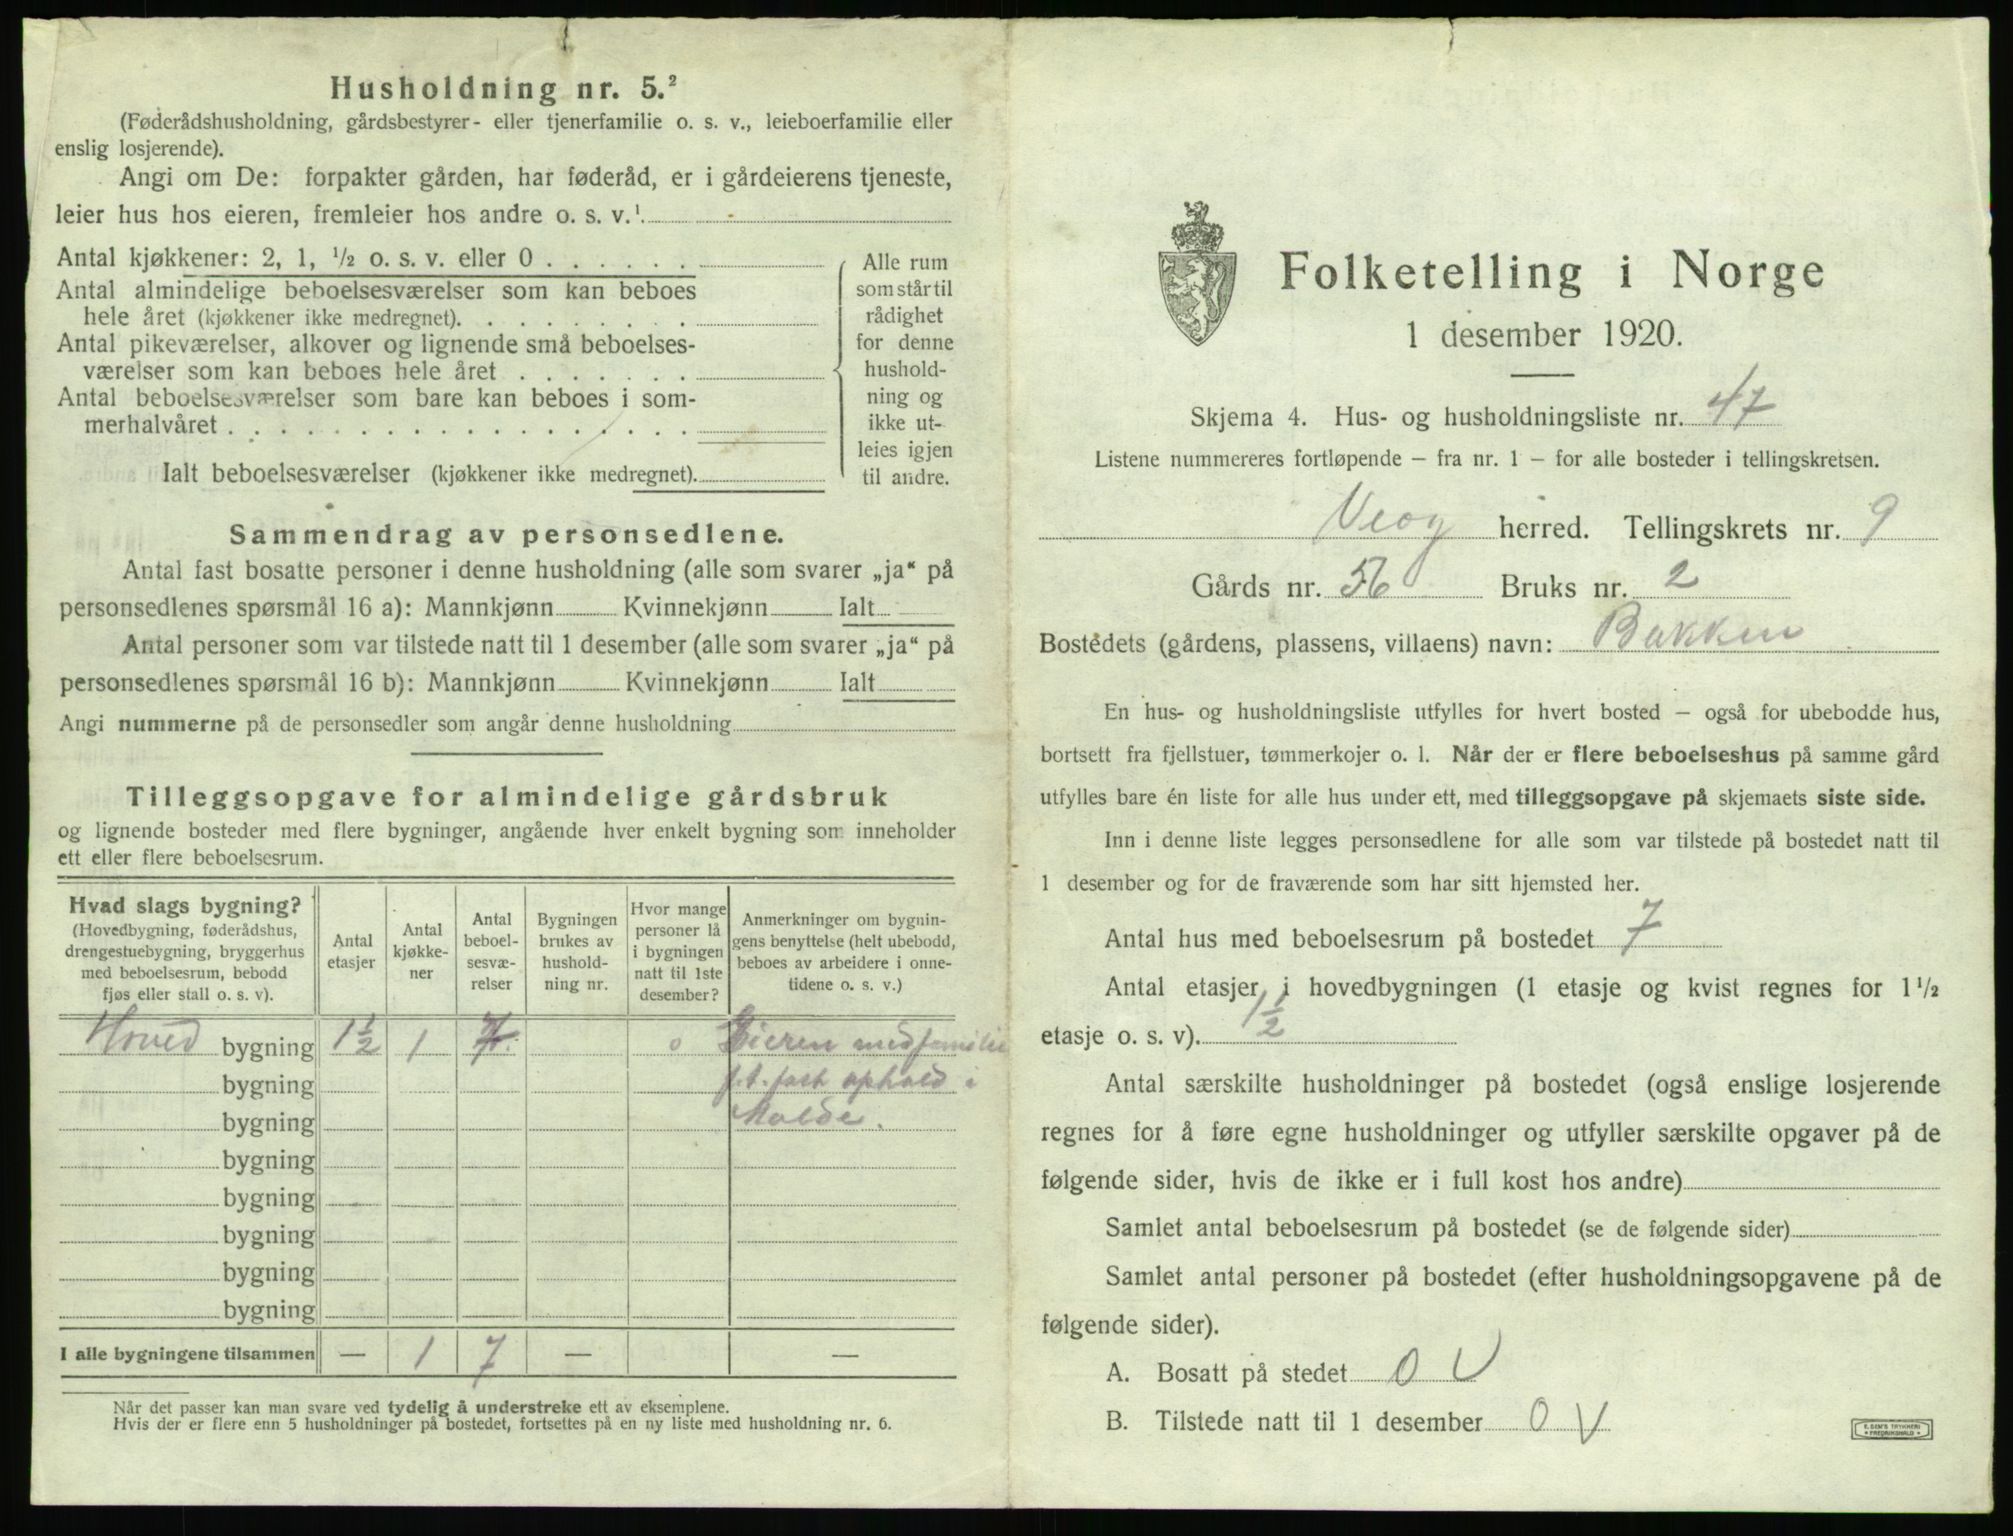 Husholdning nr. 5.²
(Føderådshusholdning, gårdsbestyrer- eller tjenerfamilie o. s. v., leieboerfamilie eller
enslig losjerende).
Angi om De: forpakter gården, har føderåd, er i gårdeierens tjeneste,
leier hus hos eieren, fremleier hos andre o. s. v.¹
Antal kjøkkener: 2, 1, ½ o. s. v. eller 0 . . . . . .
Antal almindelige beboelsesværelser som kan beboes
hele året (kjøkkener ikke medregnet). . . . . . . . .
Antal pikeværelser, alkover og lignende små beboelses-
værelser som kan beboes hele året . . . . . . .
Antal beboelsesværelser som bare kan beboes i som-
merhalvåret . . . . . . . . . . . . . . . . . .
Ialt beboelsesværelser (kjøkkener ikke medregnet).
Alle rum
som står til
rådighet
for denne
hushold-
ning og
ikke ut-
leies igjen
til andre.
Sammendrag av personsedlene.
Antal fast bosatte personer i denne husholdning (alle som svarer „ja“ på
personsedlenes spørsmål 16 a): Mannkjønn Kvinnekjønn Ialt
Antal personer som var tilstede natt til 1 desember (alle som svarer „ja“ på
personsedlenes spørsmål 16 b): Mannkjønn Kvinnekjønn Ialt
Angi nummerne på de personsedler som angår denne husholdning
Tilleggsopgave for almindelige gårdsbruk
og lignende bosteder med flere bygninger, angående hver enkelt bygning som inneholder
ett eller flere beboelsesrum.
Hvad slags bygning?
(Hovedbygning, føderådshus,
drengestuebygning, bryggerhus
med beboelsesrum, bebodd
fjøs eller stall o. s. v).
Antal
etasjer
Antal
kjøkke-
ner
Antal
beboel-
sesvæ-
relser
Bygningen
brukes av
hushold-
ning nr.
Hvor mange
personer lå
i bygningen
natt til 1ste
desember?
Anmerkninger om bygnin-
gens benyttelse (helt ubebodd,
beboes av arbeidere i onne-
tidene o. s. v.)
Hoved bygning 1½ 1 7. 0 Eieren med familie
bygning f.t. fast ophold i
bygning Molde.
bygning
bygning
bygning
bygning
bygning
I alle bygningene tilsammen — 1 7 — —
Når det passer kan man svare ved tydelig å understreke ett av eksemplene.
Hvis der er flere enn 5 husholdninger på bostedet, fortsettes på en ny liste med husholdning nr. 6.
Folketelling i Norge
1 desember 1920.
Skjema 4. Hus- og husholdningsliste nr. 47
Listene nummereres fortløpende – fra nr. 1 – for alle bosteder i tellingskretsen.
Veøy herred. Tellingskrets nr. 9
Gårds nr. 56 Bruks nr. 2
Bostedets (gårdens, plassens, villaens) navn: Bakken
En hus- og husholdningsliste utfylles for hvert bosted – også for ubebodde hus,
bortsett fra fjellstuer, tømmerkojer o. l. Når der er flere beboelseshus på samme gård
utfylles bare én liste for alle hus under ett, med tilleggsopgave på skjemaets siste side.
Inn i denne liste legges personsedlene for alle som var tilstede på bostedet natt til
1 desember og for de fraværende som har sitt hjemsted her.
Antal hus med beboelsesrum på bostedet 7
Antal etasjer i hovedbygningen (1 etasje og kvist regnes for 1½
etasje o. s. v). 1½
Antal særskilte husholdninger på bostedet (også enslige losjerende
regnes for å føre egne husholdninger og utfyller særskilte opgaver på de
følgende sider, hvis de ikke er i full kost hos andre)
Samlet antal beboelsesrum på bostedet (se de følgende sider)
Samlet antal personer på bostedet (efter husholdningsopgavene på de
følgende sider).
A. Bosatt på stedet 0 V
B. Tilstede natt til 1 desember 0 V
E. SEM'S TRYKKERI
FREDRIKSHALD